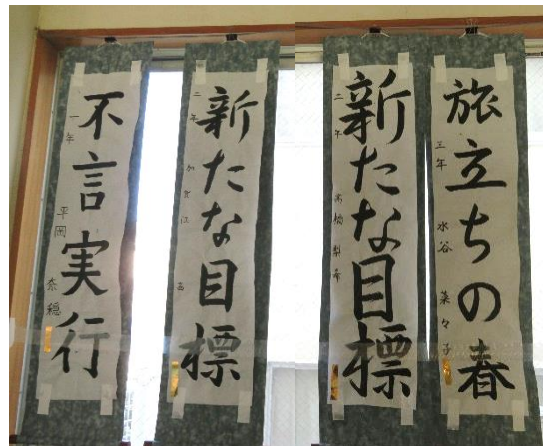 旅立ちの春
三年 水谷 菜々子
新たな目標
二年 高橋 梨希
新たな目標
二年
不言実行
一年 平岡 奈穏